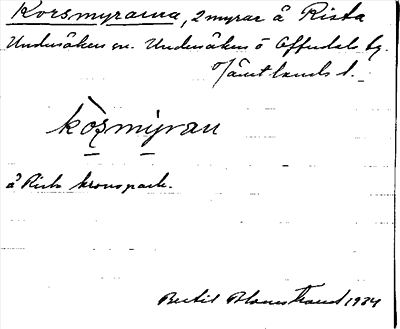 Korsmyrarna, 2 myrar å Rista
Undersåkers sn. Undersåkers o Offerdals tg.
Jämtlands l.
kòʂmýran
å Rista kronopark.
Bertil Blomstrand 1934